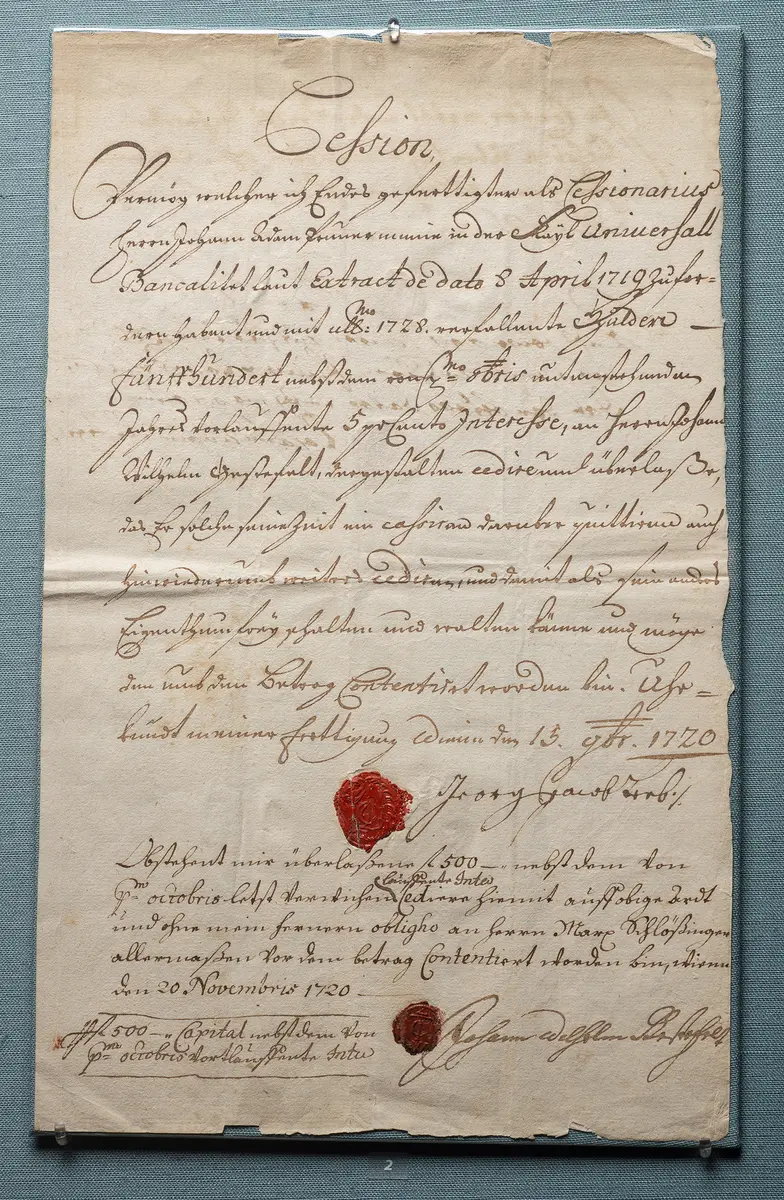 Cession,
Vermög welcher ich Endes gefertigter als Cessionarius
Herrn Johann Adam in der Kayl: Universall
Bancalitet laut Extract de dato 8 April 1719 zu for-
dern habent und mit ult:mo 1728. verfallente Gulden
fünffhundert nebst dem von p:mo 8bris untenstehenden
Jahres vorlauffente 5 pCento Interesse, an Herrn Johann
Wilhelm Gestefelt, dergestalten cedire und überlaße,
das Er solche seiner Zeit ein cassiren darüber quittiren auch
hinwiederumb weiters cediren, und damit als sein anders
Eigenthum frey schalten und walten könne und möge
den umb den Betrag Contentirt worden bin. Uhr=
kundt meiner Fertigung Wienn den 15. 9br. 1720
Georg Jacob
Obstehent mir überlaßene fl 500 — nebst dem von
p:mo octobris letst verwichen lauffente Inte Cediere hiemit auff obige ardt
und ohne mein fernern obligho an herrn Marx Schlößinger
allermaßen vor dem betrag Contentiert worden bin, wienn
den 20 Novembris 1720
fl 500 — Capital nebst dem von
p:mo octobris vortlauffente Inte
Johann Wilhelm Gestefelt
2